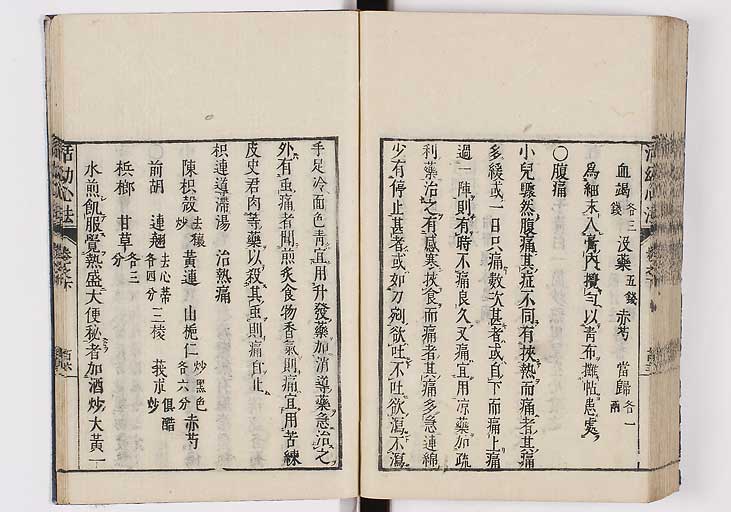 血竭各三錢 汲藥五錢 赤芍 當歸各一兩
爲細末入膏內攪勻以青布攤帖患處
〇腹痛
小兒驟然腹痛其症不同有挾熱而痛者其痛
多緩或一日只痛數次甚者或自下而痛上痛
過一陣則有時不痛良久又痛宜用涼藥加疏
利藥治之有感寒挾食而痛者其痛多急連綿
少有停止甚者或如刀剜欲吐不吐欲瀉不瀉
手足冷面色青宜用升發藥加消導藥急治之
外有虫痛者聞煎炙食物香氣則痛宜用苦練
皮史君肉等藥以殺其虫則痛自止
枳連導滯湯 治熱痛
陳枳殼去穰炒 黃連 山梔仁炒黑色各六分 赤芍
前胡 連翹去心蒂各四分 三稜 莪朮俱醋炒
檳榔 甘草各三分
水煎飢服覺熱盛大便秘者加酒炒大黃一
活幼心法 卷之六